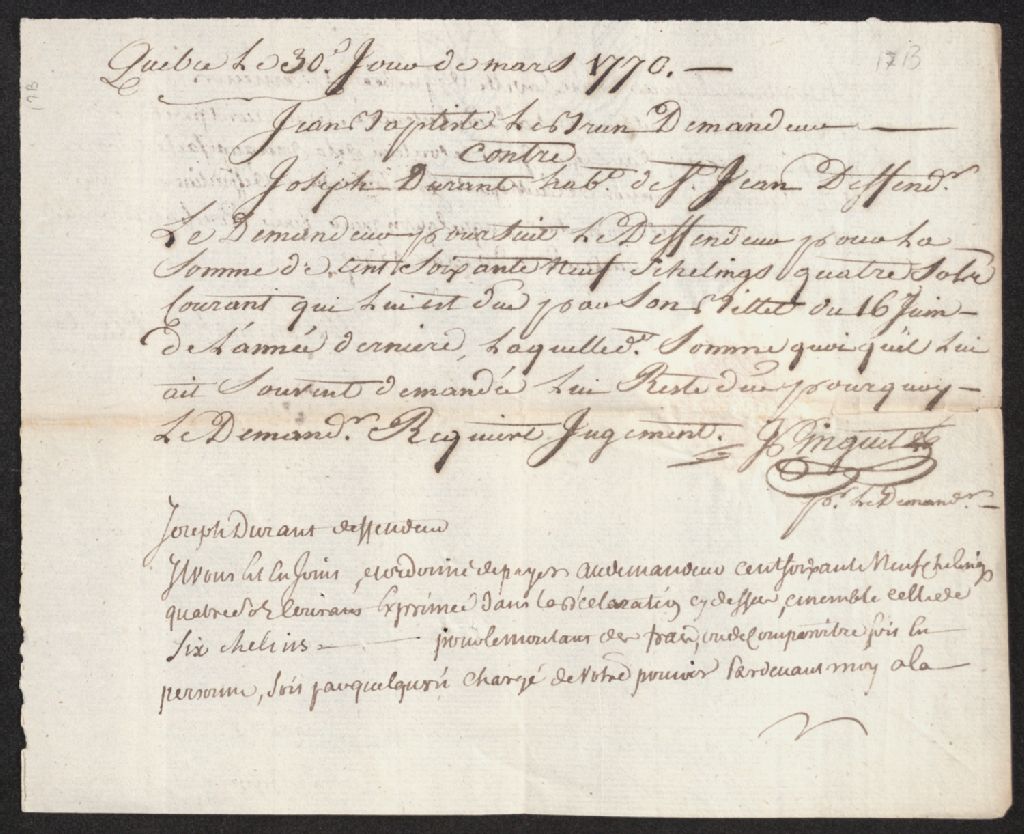 Quebec Le 30.e Jour de mars 1770. —
17 B
17B
Jean Baptiste Le Brun Demandeur —
contre
Joseph Durant hab.t de St. Jean Deffend.r
Le Demandeur poursuit Le Deffendeur pour La
Somme de Cent Soixante Neuf Schelings quatre Sols
Courant qui Lui est Due par Son Billet du 16 Juin
de L'année derniere, Laquelle d. Somme quoi qu'il Lui
ait Souvent demandée Lui Reste due pourquoy
Le Demand.r Requiert Jugement. J Pinguet
po.r Le Demand.r
Joseph Durant deffendeur
Il vous Est En Joint et ordonné de payer au demandeur cent soixante Neuf chelings
quatre Courant Exprimée dans la déclaration cy dessus, ensemble celle de
six chelins — pour le montant des frais, ou de Comparoitre soit En
personne, soit par quelqu'un chargé de votre pouvoir Pardevant moy a la